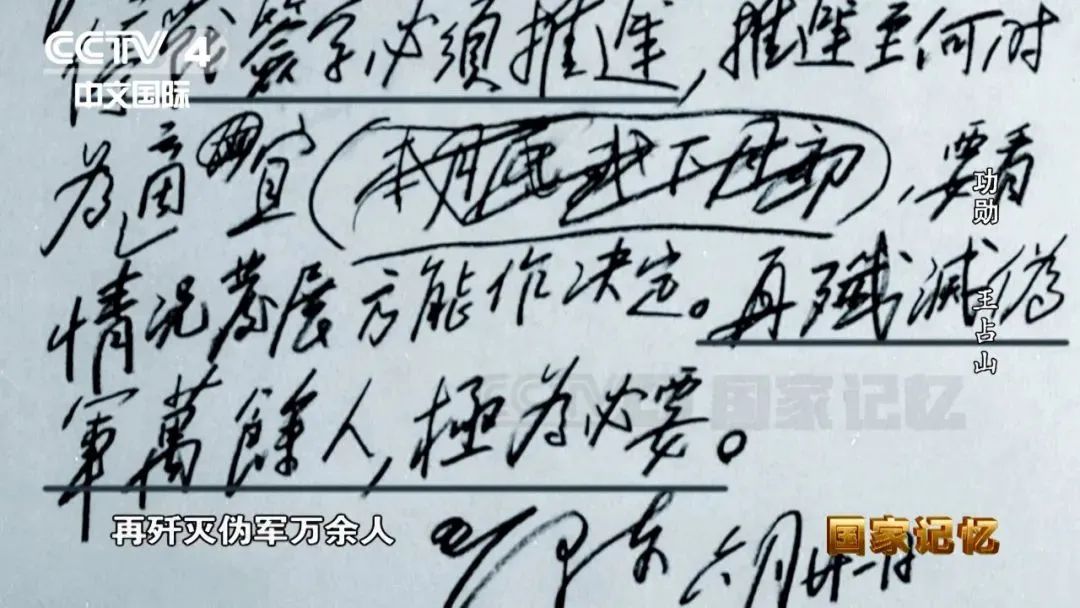 CCTV 4
中文国际
停戰簽字必須推遲，推遲至何时
為適宜，要看
情况發展方能作决定。再殲滅偽
軍萬餘人，極為必要。
毛泽东 六月廿一日
功勋 王占山
CCTV 国家记忆
再歼灭伪军万余人
国家记忆